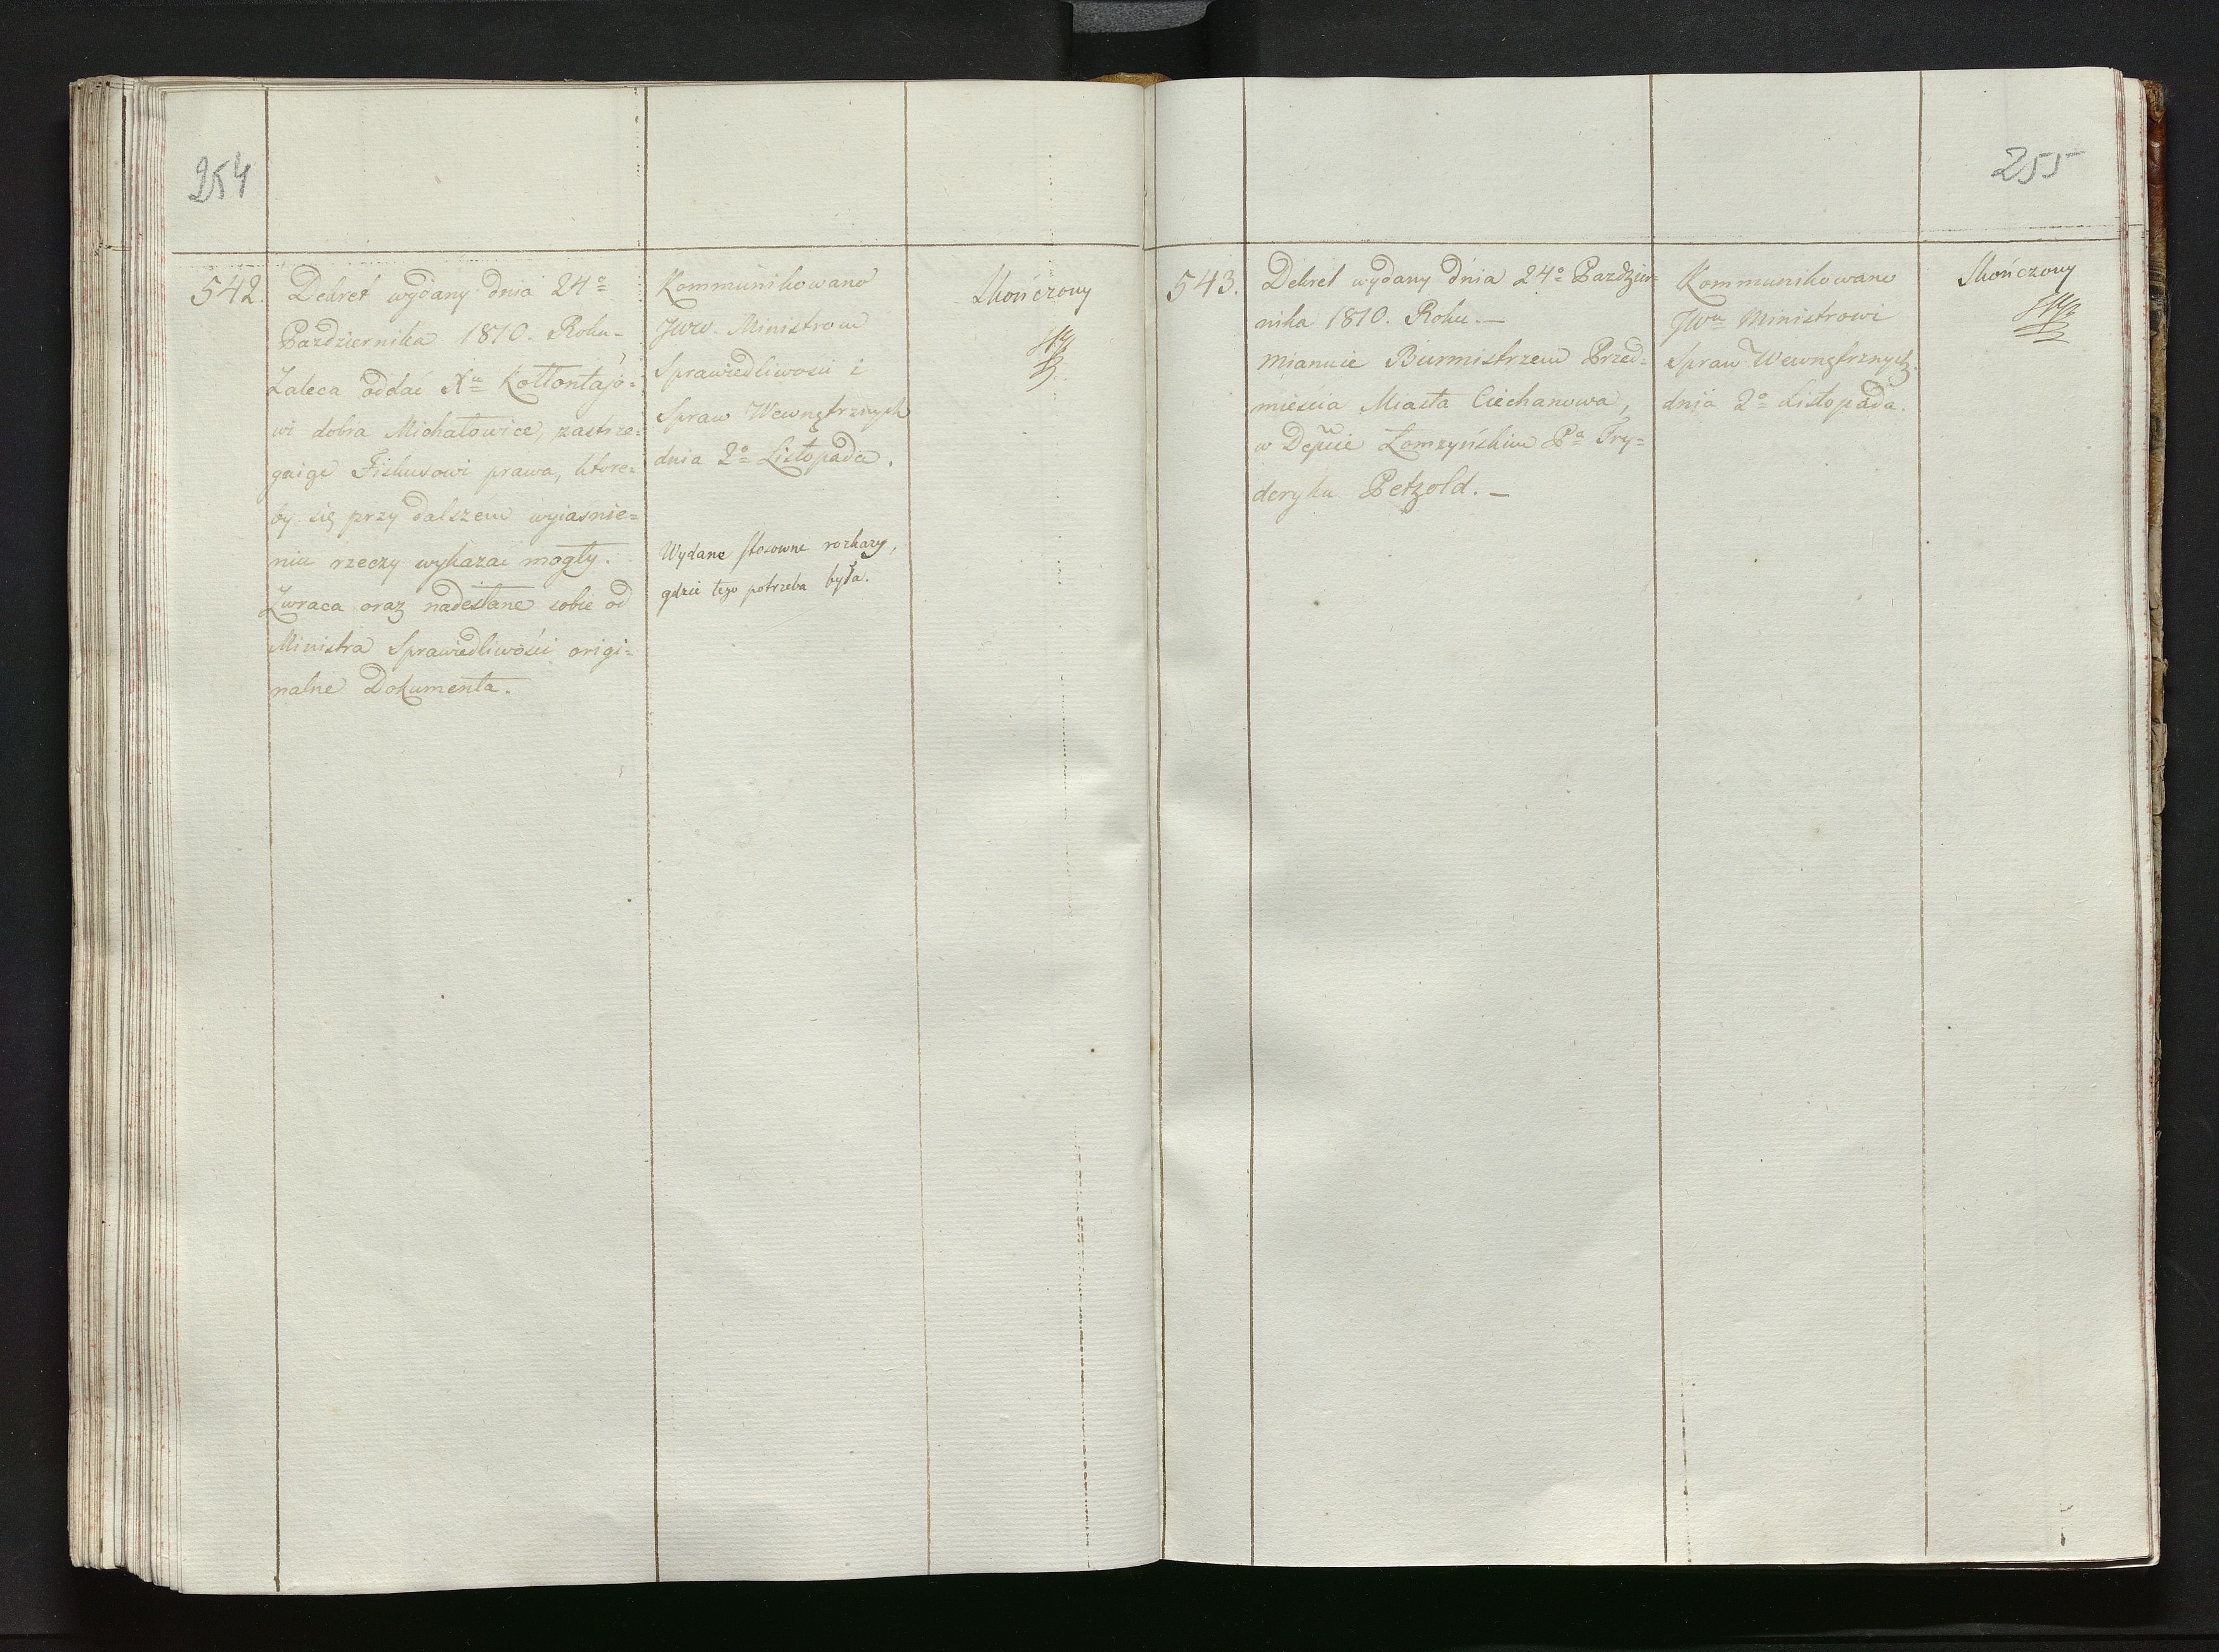 254
542.
Dekret wydany dnia 24º
Pazdziernika 1810. Roku -
Zaleca oddać Xu Kołłontajo=
wi dobra Michałowice, zastrze=
gaige Fiskusowi prawa, ktore=
by się przy dalszem wyiasnie=
niu rzeczy wykazac mogły.
Zwraca oraz nadesłane sobie od
Ministra Sprawiedliwości origi=
nalne Dokumenta.
Kommunikowano
JWW. Ministrom
Sprawiedliwosci i
Spraw Wewnętrznych
dnia 2º Listopada.
Wydane stosowne rozkazy,
gdzie tego potrzeba była.
Skończony
255
543.
Dekret wydany dnia 24º Pazdzier=
nika 1810. Roku. —
Mianuie Burmistrzem Przed=
miescia Miasta Ciechanowa,
w Depcie Łomzyńskim Pa Fry=
deryka Petzold. —
Kommunikowano
JWu Ministrowi
Spraw Wewnętrznych
dnia 2º Listopada.
Skończony